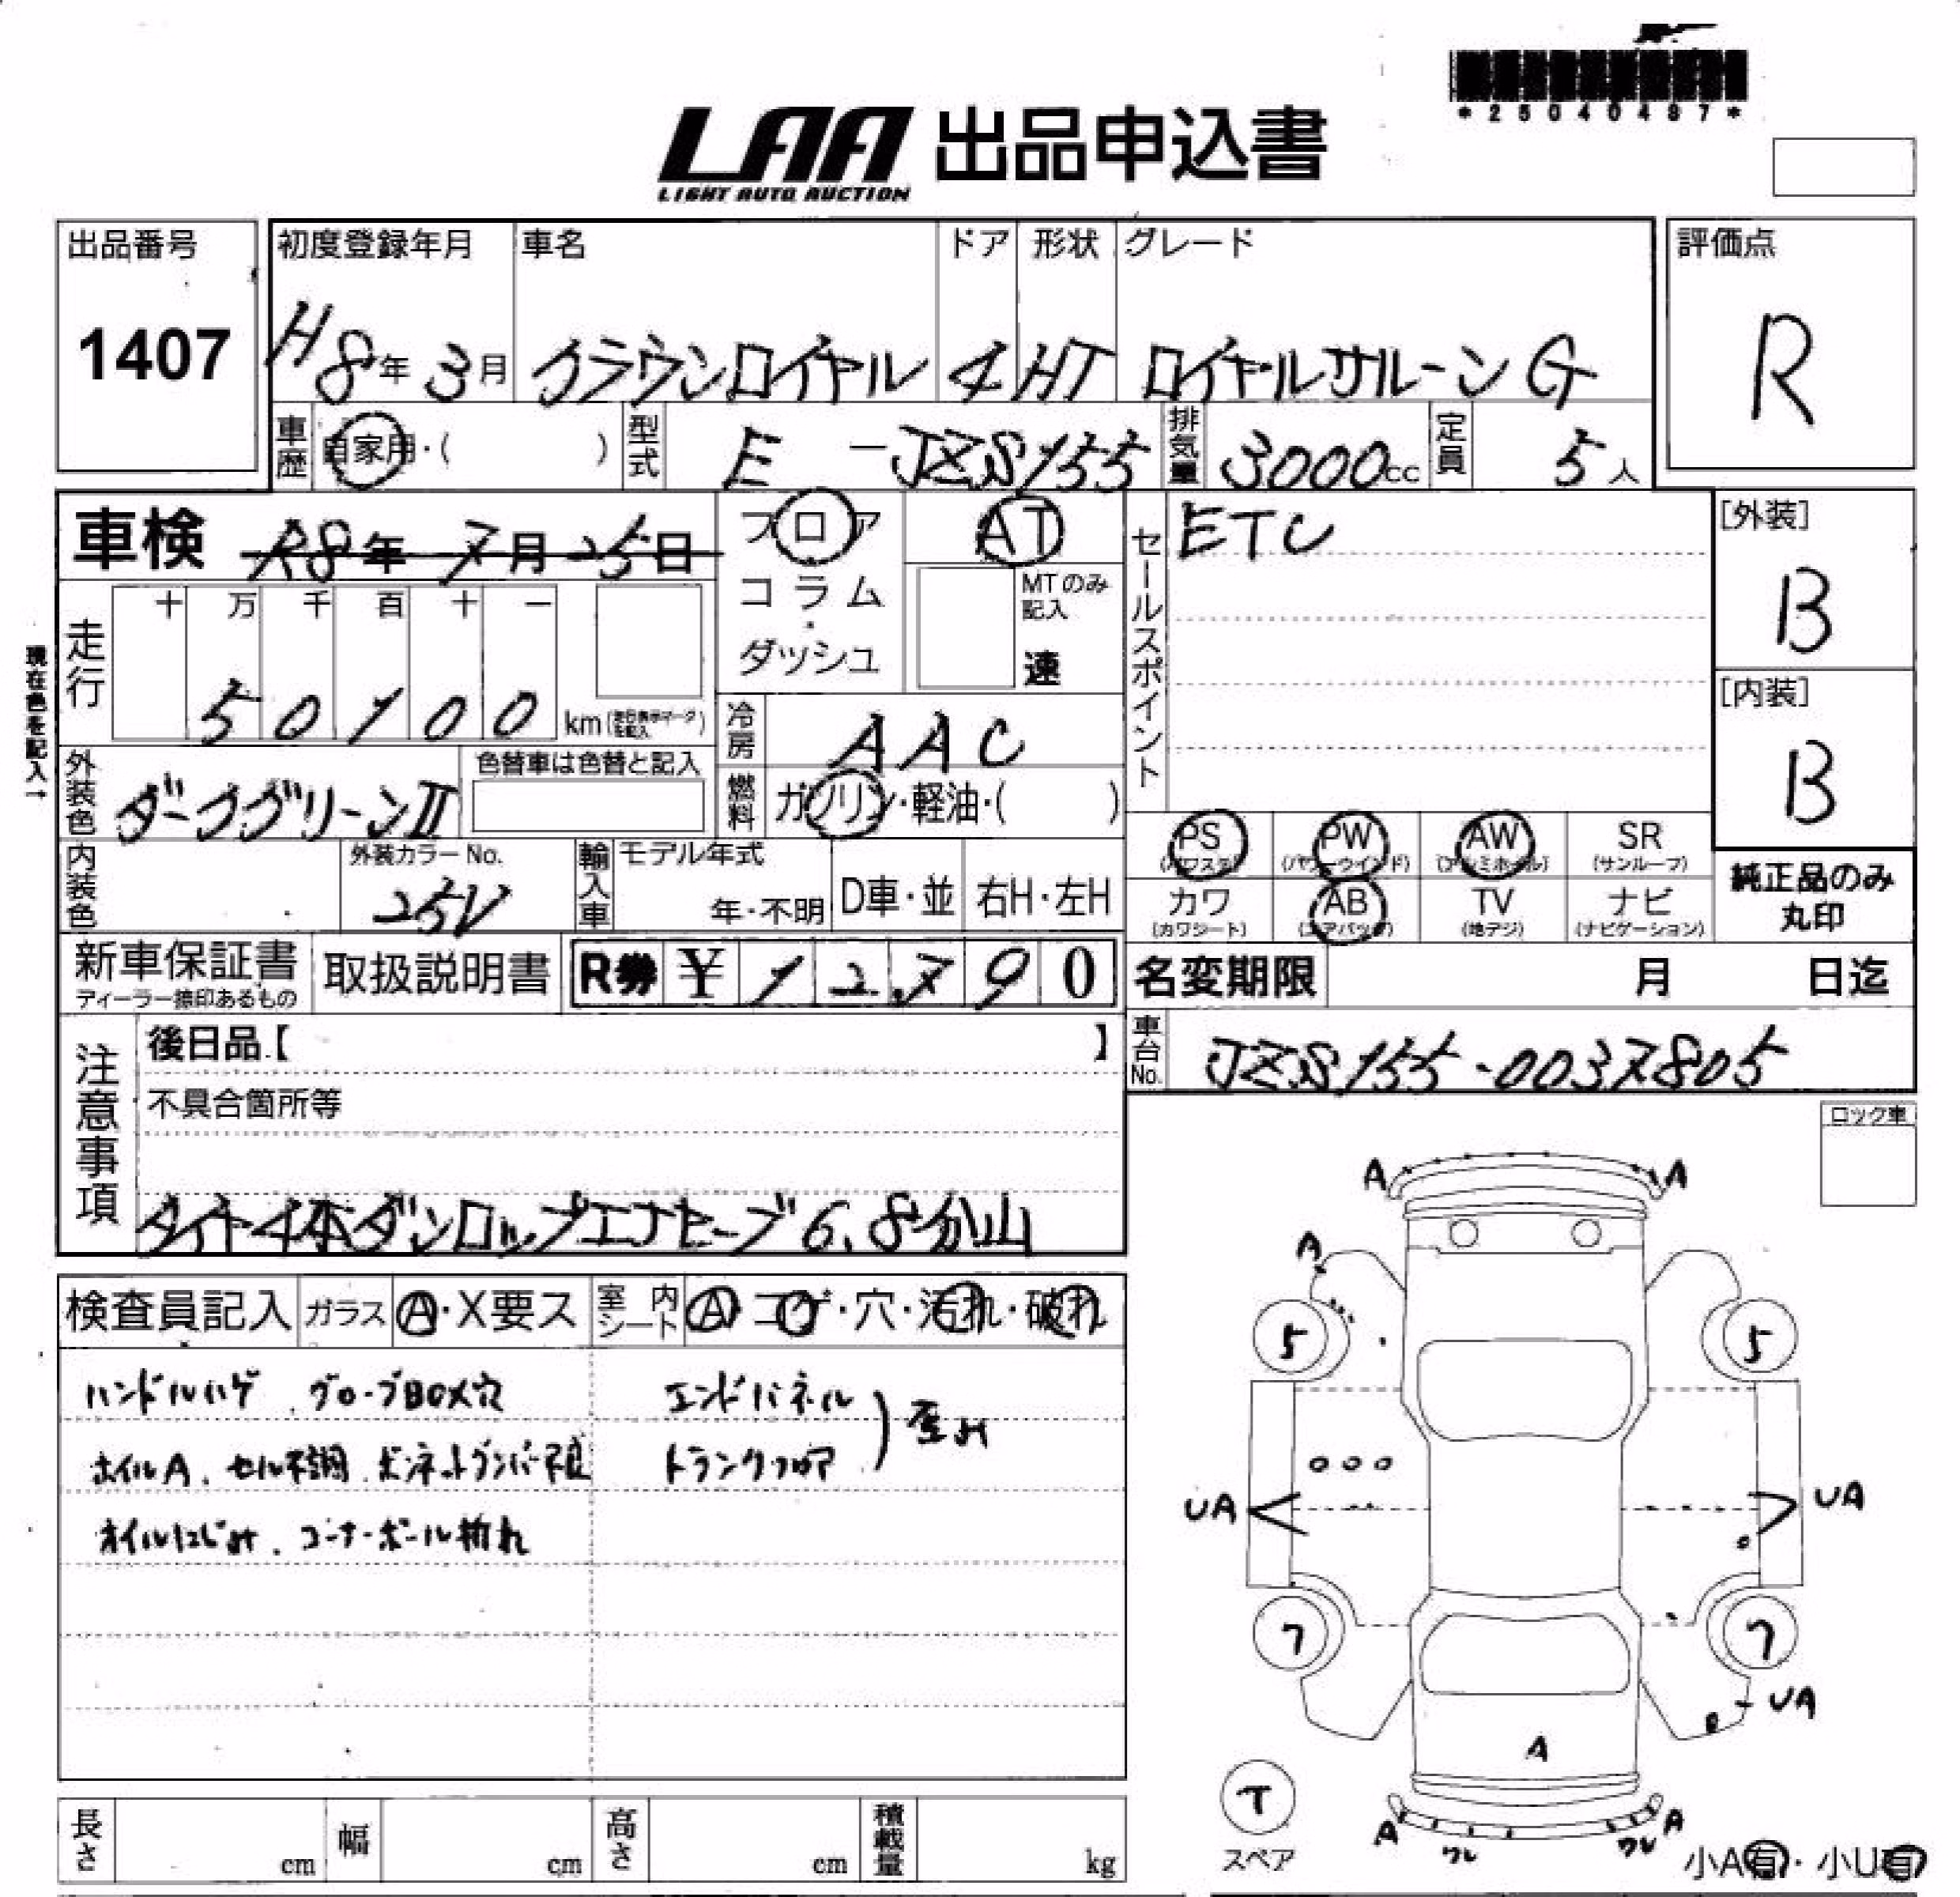 *25040497*
LAA 出品申込書
LIGHT AUTO AUCTION
出品番号 初度登録年月 車名 ドア 形状 グレード 評価点
1407 H8年 3月 クラウンロイヤル 4 HT ロイヤルサルーンG R
車歴 自家用・( ) 型式 E-JZS155 排気量 3000cc 定員 5人
車検 R8年 7月 25日 フロア AT セールスポイント ETC [外装]
B
コラム MTのみ記入
・
ダッシュ 速
走行 十 万 千 百 十 一
50100 km
[内装]
B
現在色を記入→
冷房 AAC
外装色 ダークグリーンⅡ 色替車は色替と記入
燃料 ガソリン・軽油・( )
PS PW AW SR
(パワステ) (パワーウインド) (アルミホイル) (サンルーフ)
内装色 外装カラーNo. 輸入車 モデル年式
25V 年・不明 D車・並 右H・左H
カワ AB TV ナビ
(カワシート) (エアバッグ) (地デジ) (ナビゲーション)
純正品のみ
丸印
新車保証書 取扱説明書 R券 ¥12,790
ディーラー捺印あるもの
名変期限 月 日迄
注意事項 後日品【 】
車台No. JZS155-0037805
不具合箇所等
ロック車
タイヤ4本ダンロップエナセーブ6.8分山
検査員記入 ガラス A・X要ス 室内シート A・コゲ・穴・汚れ・破れ
ハンドルハゲ、グローブBOX穴 エンドパネル
ホイルA、セル不調、ボンネットダンパー不良 トランクフロア
歪み
オイルにじみ、コーナーポール折れ
A A
A
5 5
UA UA
7 7
UA
A
T
スペア
A A
ワレ ワレ
小A有・小U有
長さ cm 幅 cm 高さ cm 積載量 kg